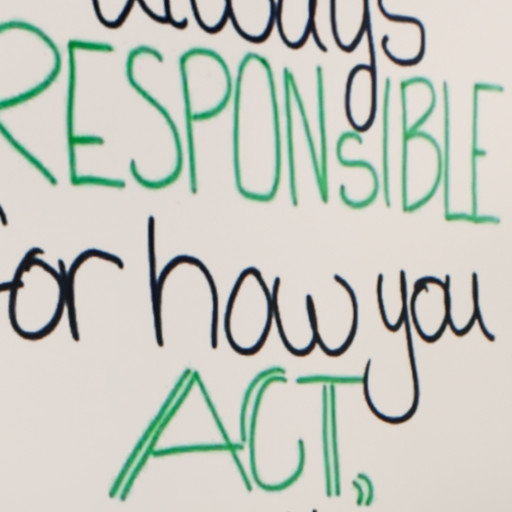 always
RESPONsIBLE
for how you
ACT.”